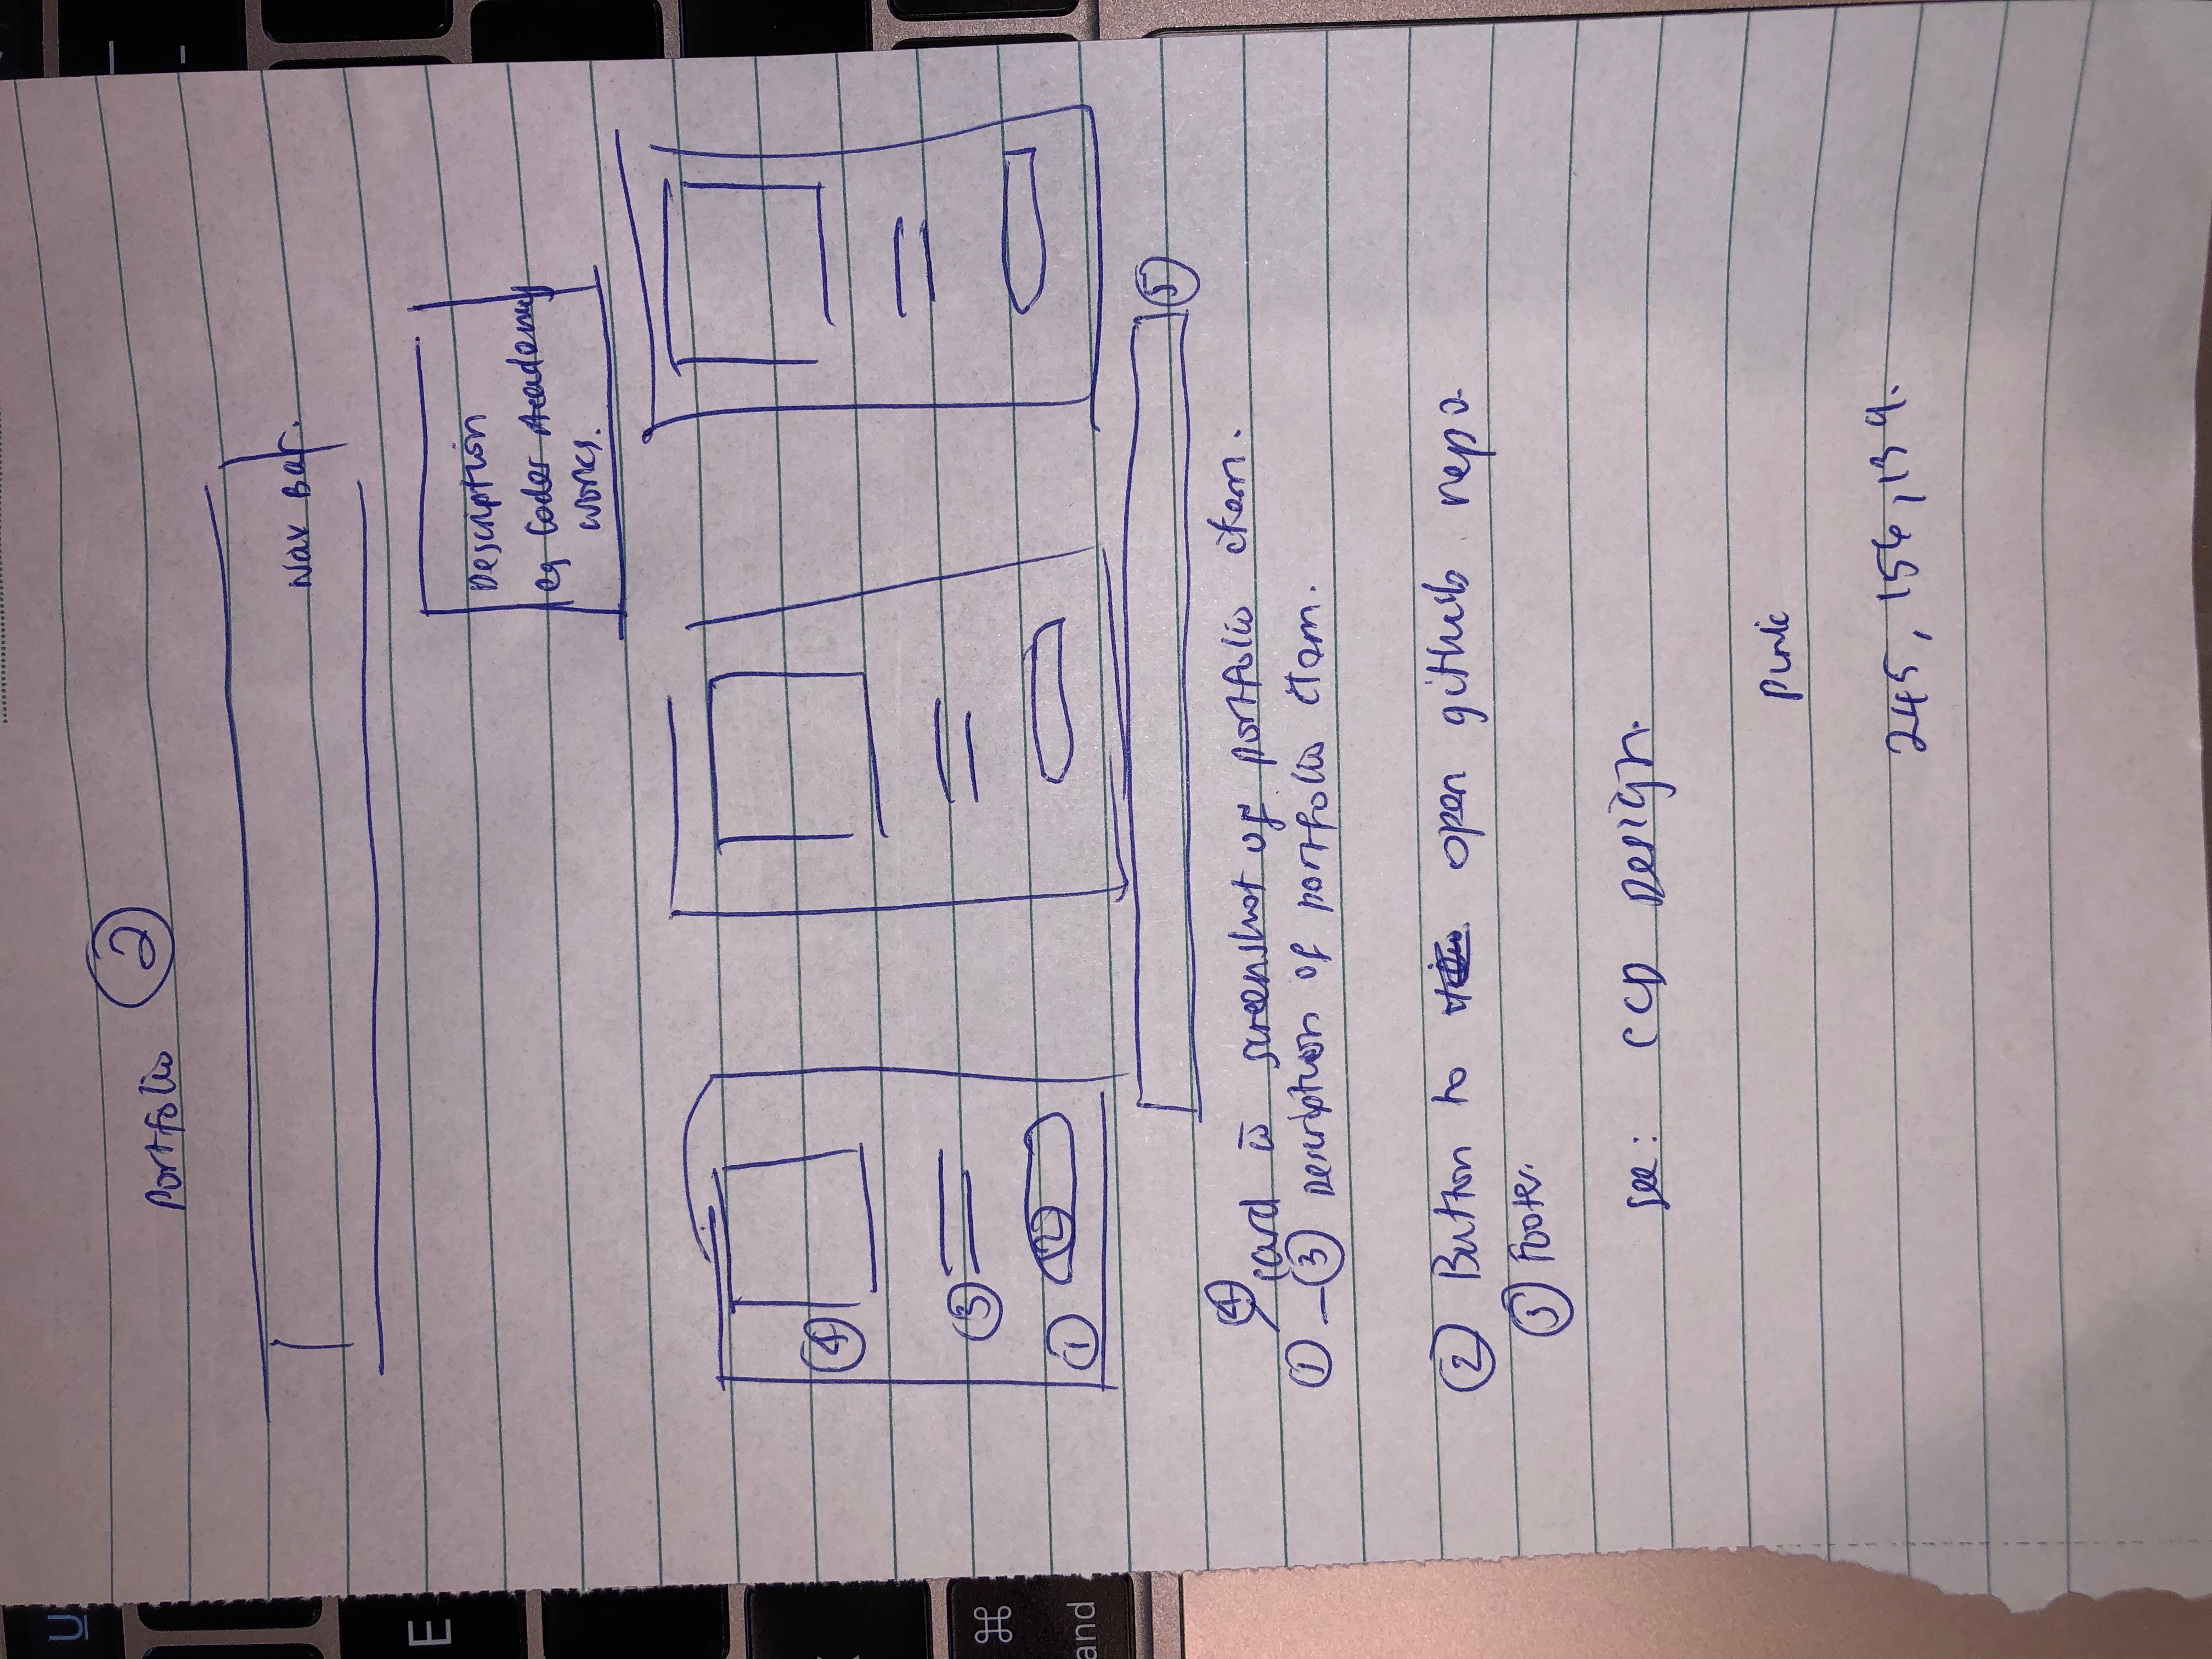 Portfolio 2
Nav Bar.
Description
eg Coder Academy
works.
4
3
1 2
5
4
card is screenshot of portfolio item.
1 - 3 Description of portfolio item.
2 Button to open github repo.
5 Footer.
see: CCD Design.
Pink
245, 156, 139.
U
E
⌘
and